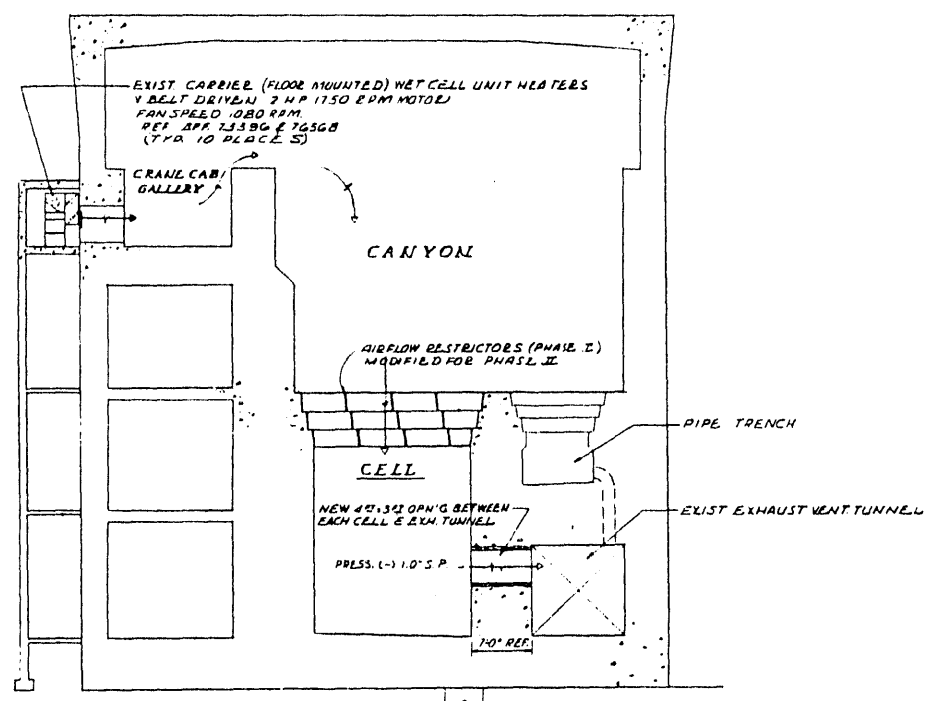 EXIST. CARRIER (FLOOR MOUNTED) WET CELL UNIT HEATERS
V BELT DRIVEN 2 HP 1750 RPM MOTOR
FAN SPEED 1080 RPM.
REF. APF. 75396 & 76568
(TYP. 10 PLACES)
CRANE CAB
GALLERY
CANYON
AIRFLOW RESTRICTORS (PHASE I)
MODIFIED FOR PHASE II
PIPE TRENCH
CELL
NEW OPN'G BETWEEN
EACH CELL & EXH. TUNNEL
EXIST EXHAUST VENT. TUNNEL
PRESS. (-) 1.0" S.P.
7'-0" REF.